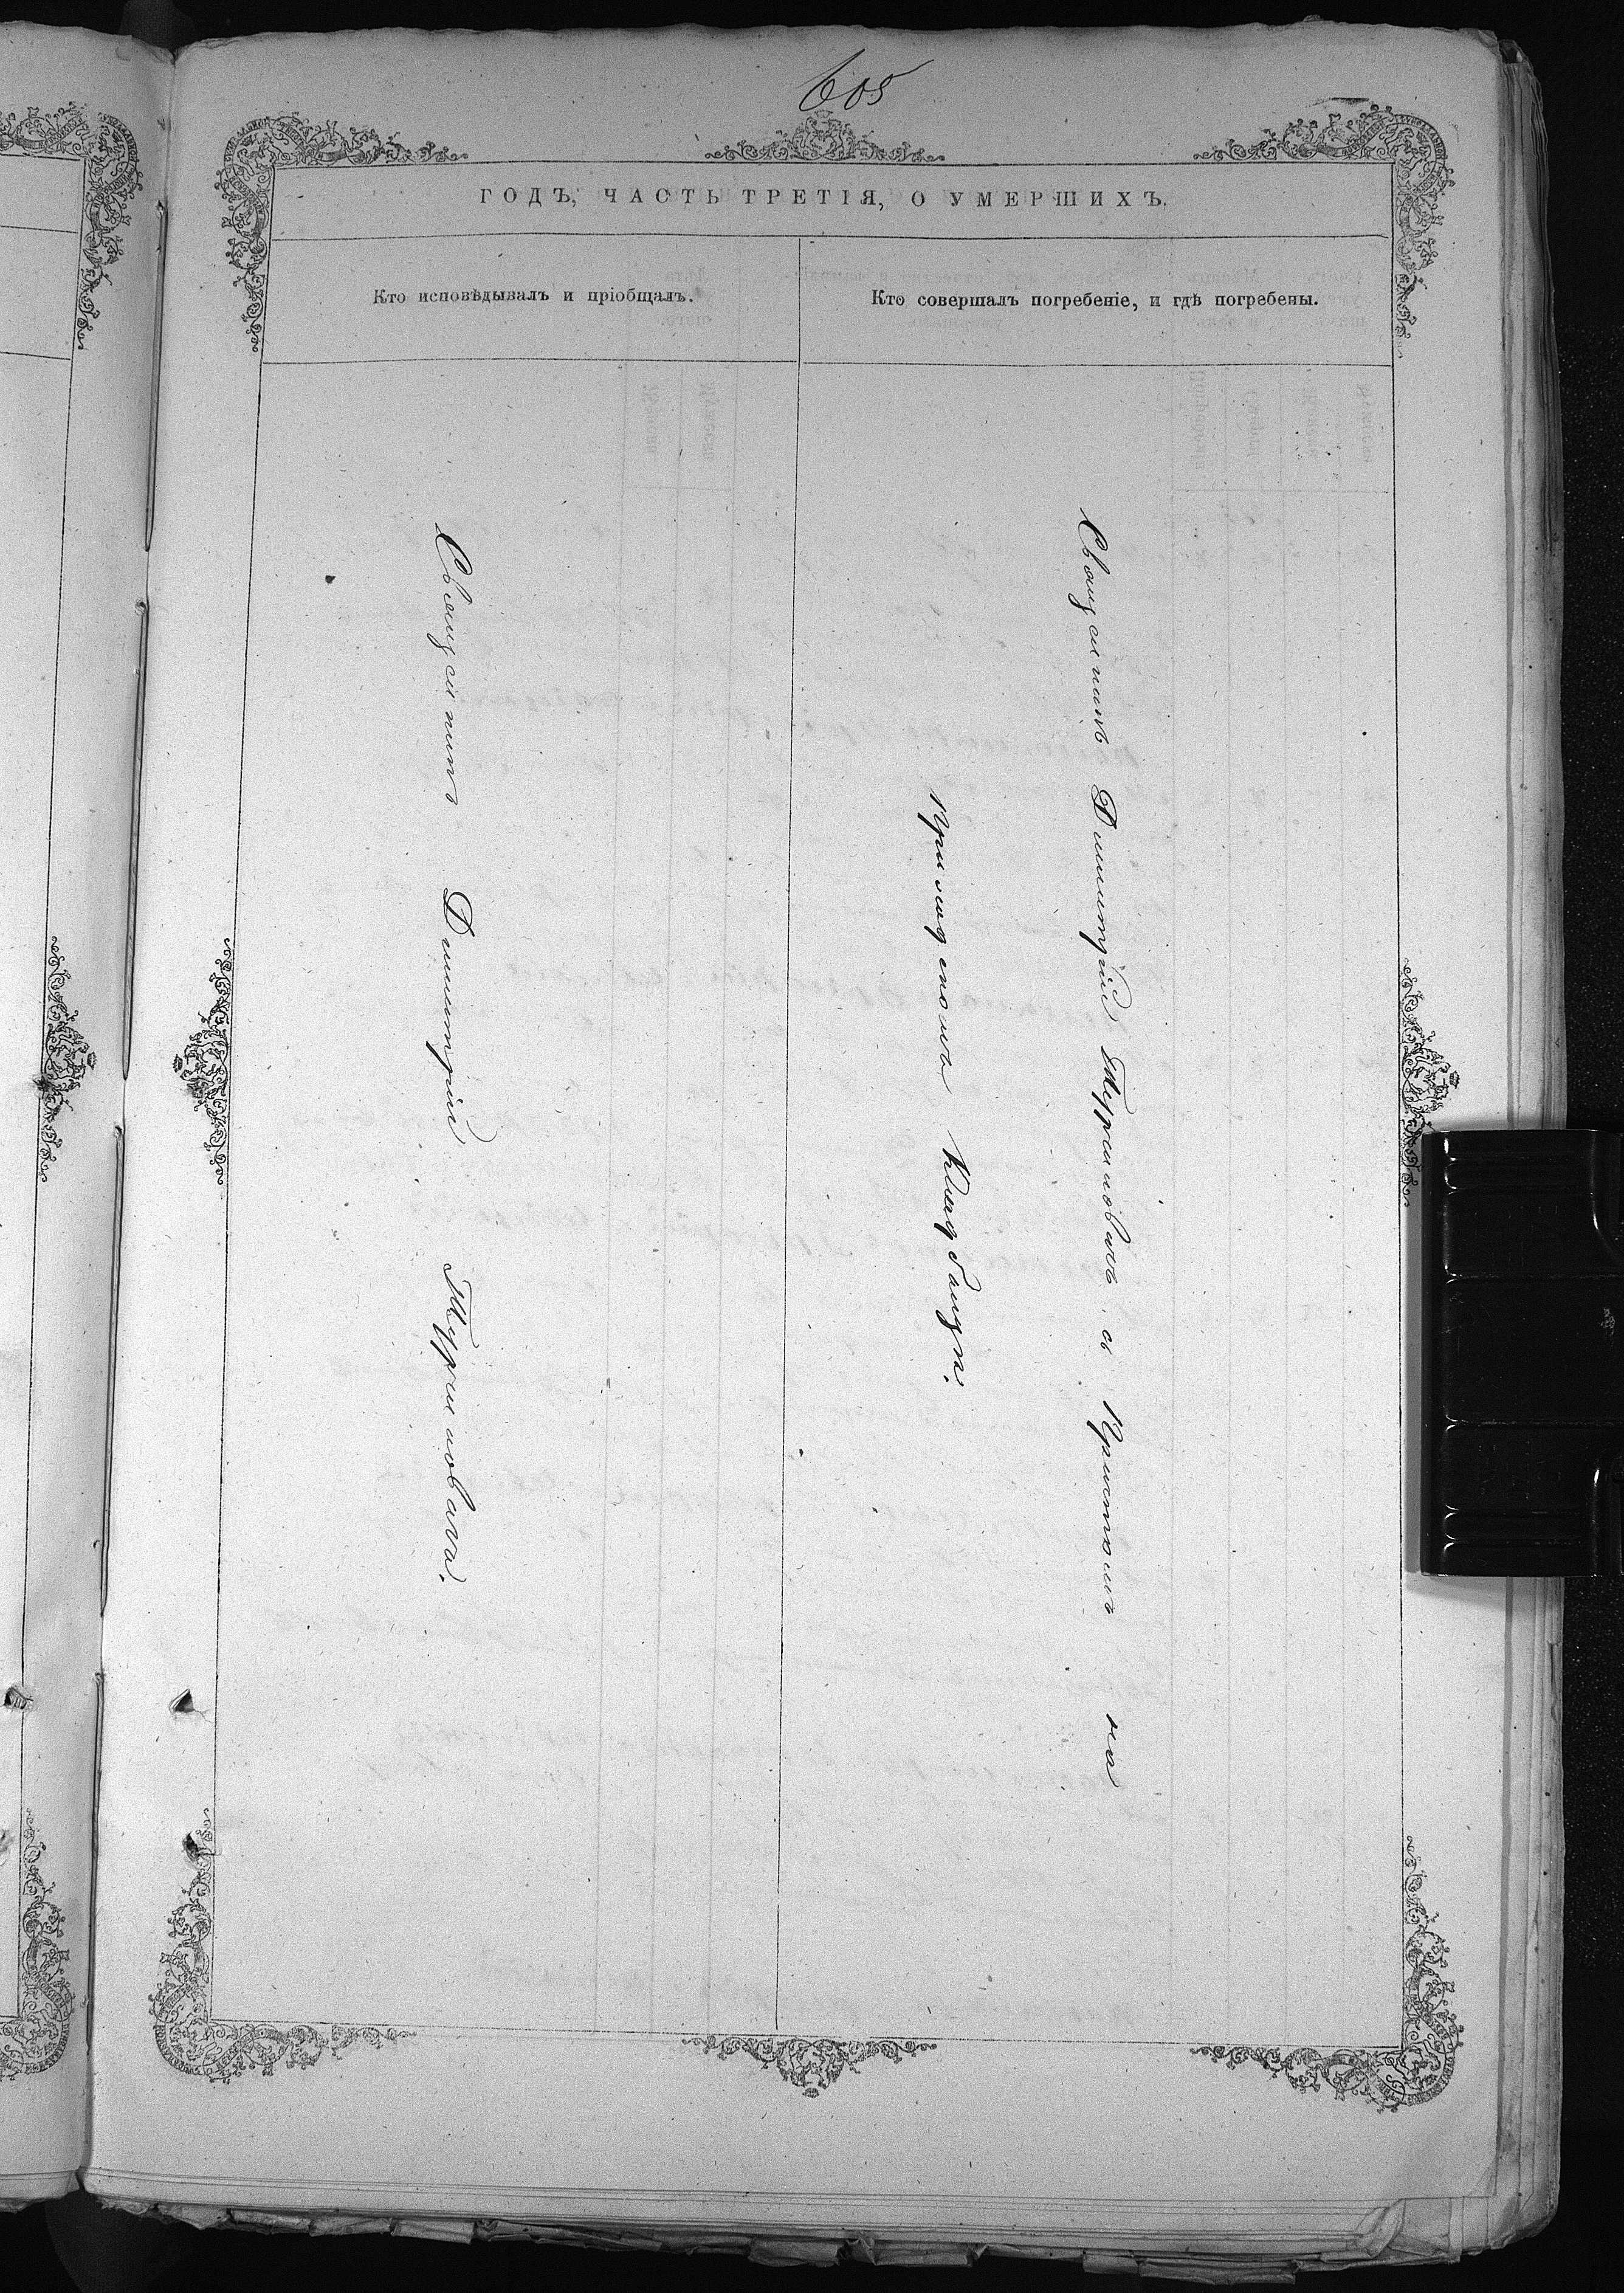 605
ГОДЪ, ЧАСТЬ ТРЕТІЯ, О УМЕРШИХЪ.
Кто исповѣдывалъ и пріобщалъ.
Кто совершалъ погребеніе, и гдѣ погребены.
Священникъ Димитрій
Священникъ Димитрій съ Причтомъ на
Приходскомъ Кладбищѣ.